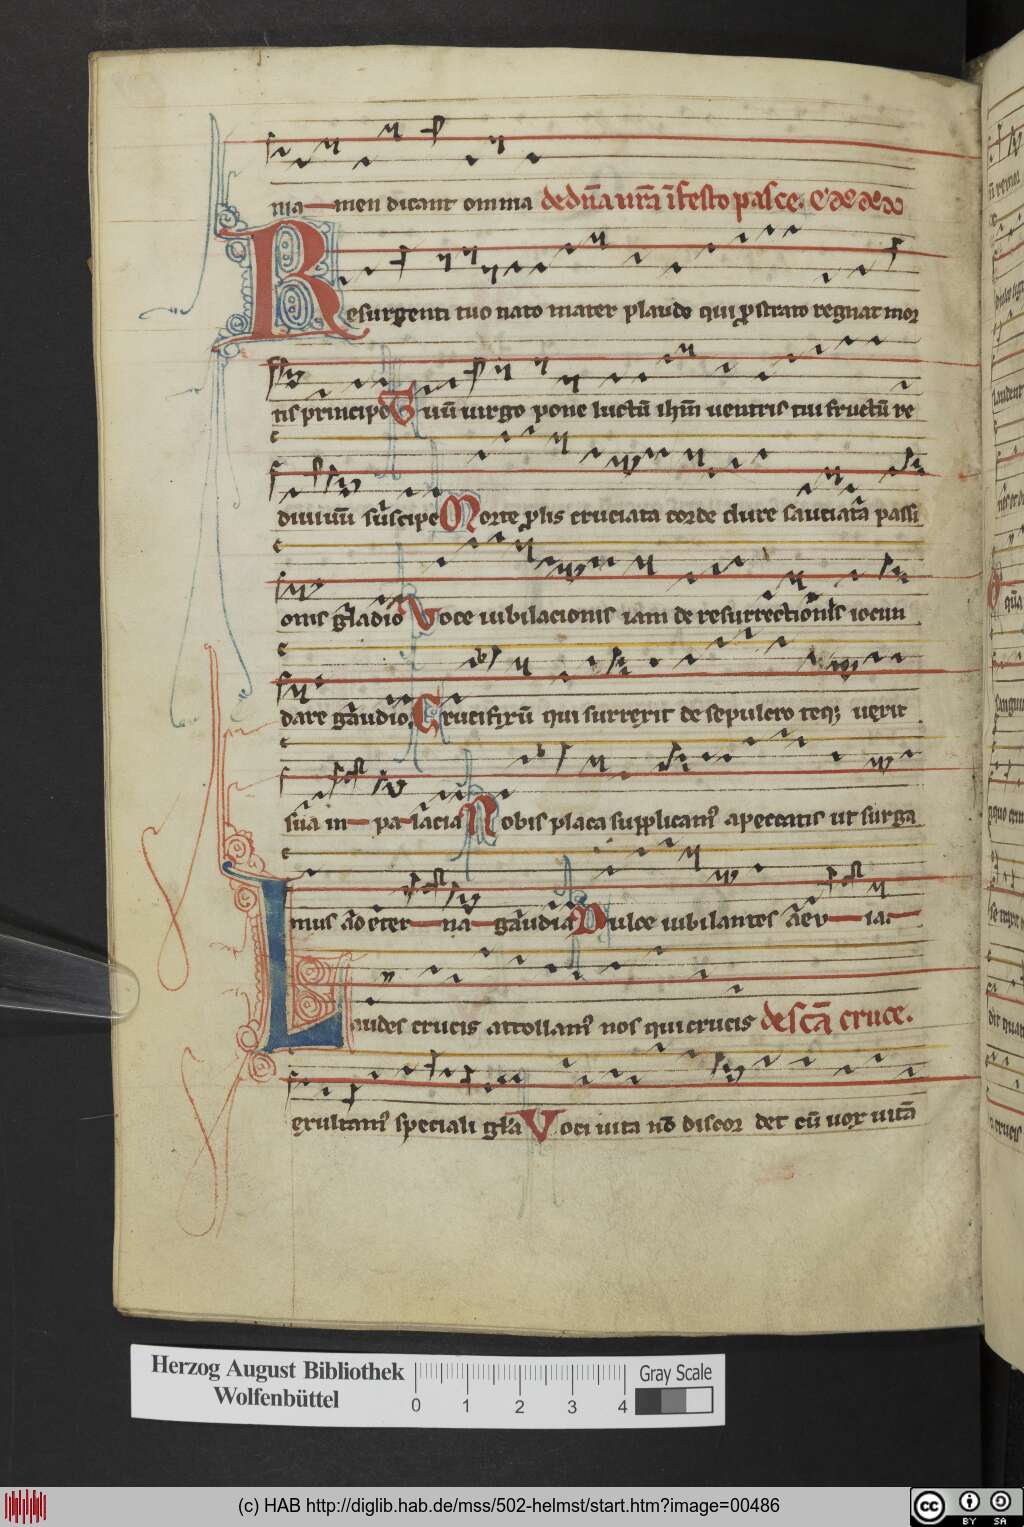 nia men dicant omnia de dn̄a nr̄a ī festo pasce. e
Resurgenti tuo nato mater plaude qui ꝓstrato regnat mor
tis principe Tuū uirgo pone luctū ihm̄ uentris tui fructū re
diuiuū suscipe Morte ꝓlis cruciata corde dure sauciata passi
onis gladio Voce iubilacionis iam de resurrectionis iocun
dare gaudio. Crucifixū qui surrexit de sepulcro teqꝫ uexit
sua in pa lacia Nobis placa supplicantꝰ a peccatis ut surga
mus ad eter na gaudia Dulce iubilantes aeu ia.
Laudes crucis attollamꝰ nos qui crucis de sc̄a cruce.
exultamꝰ speciali gl̄a Voci uita nō discor det cū uox uitā
Herzog August Bibliothek
Wolfenbüttel
0 1 2 3 4
Gray Scale
(c) HAB http://diglib.hab.de/mss/502-helmst/start.htm?image=00486
cc BY SA